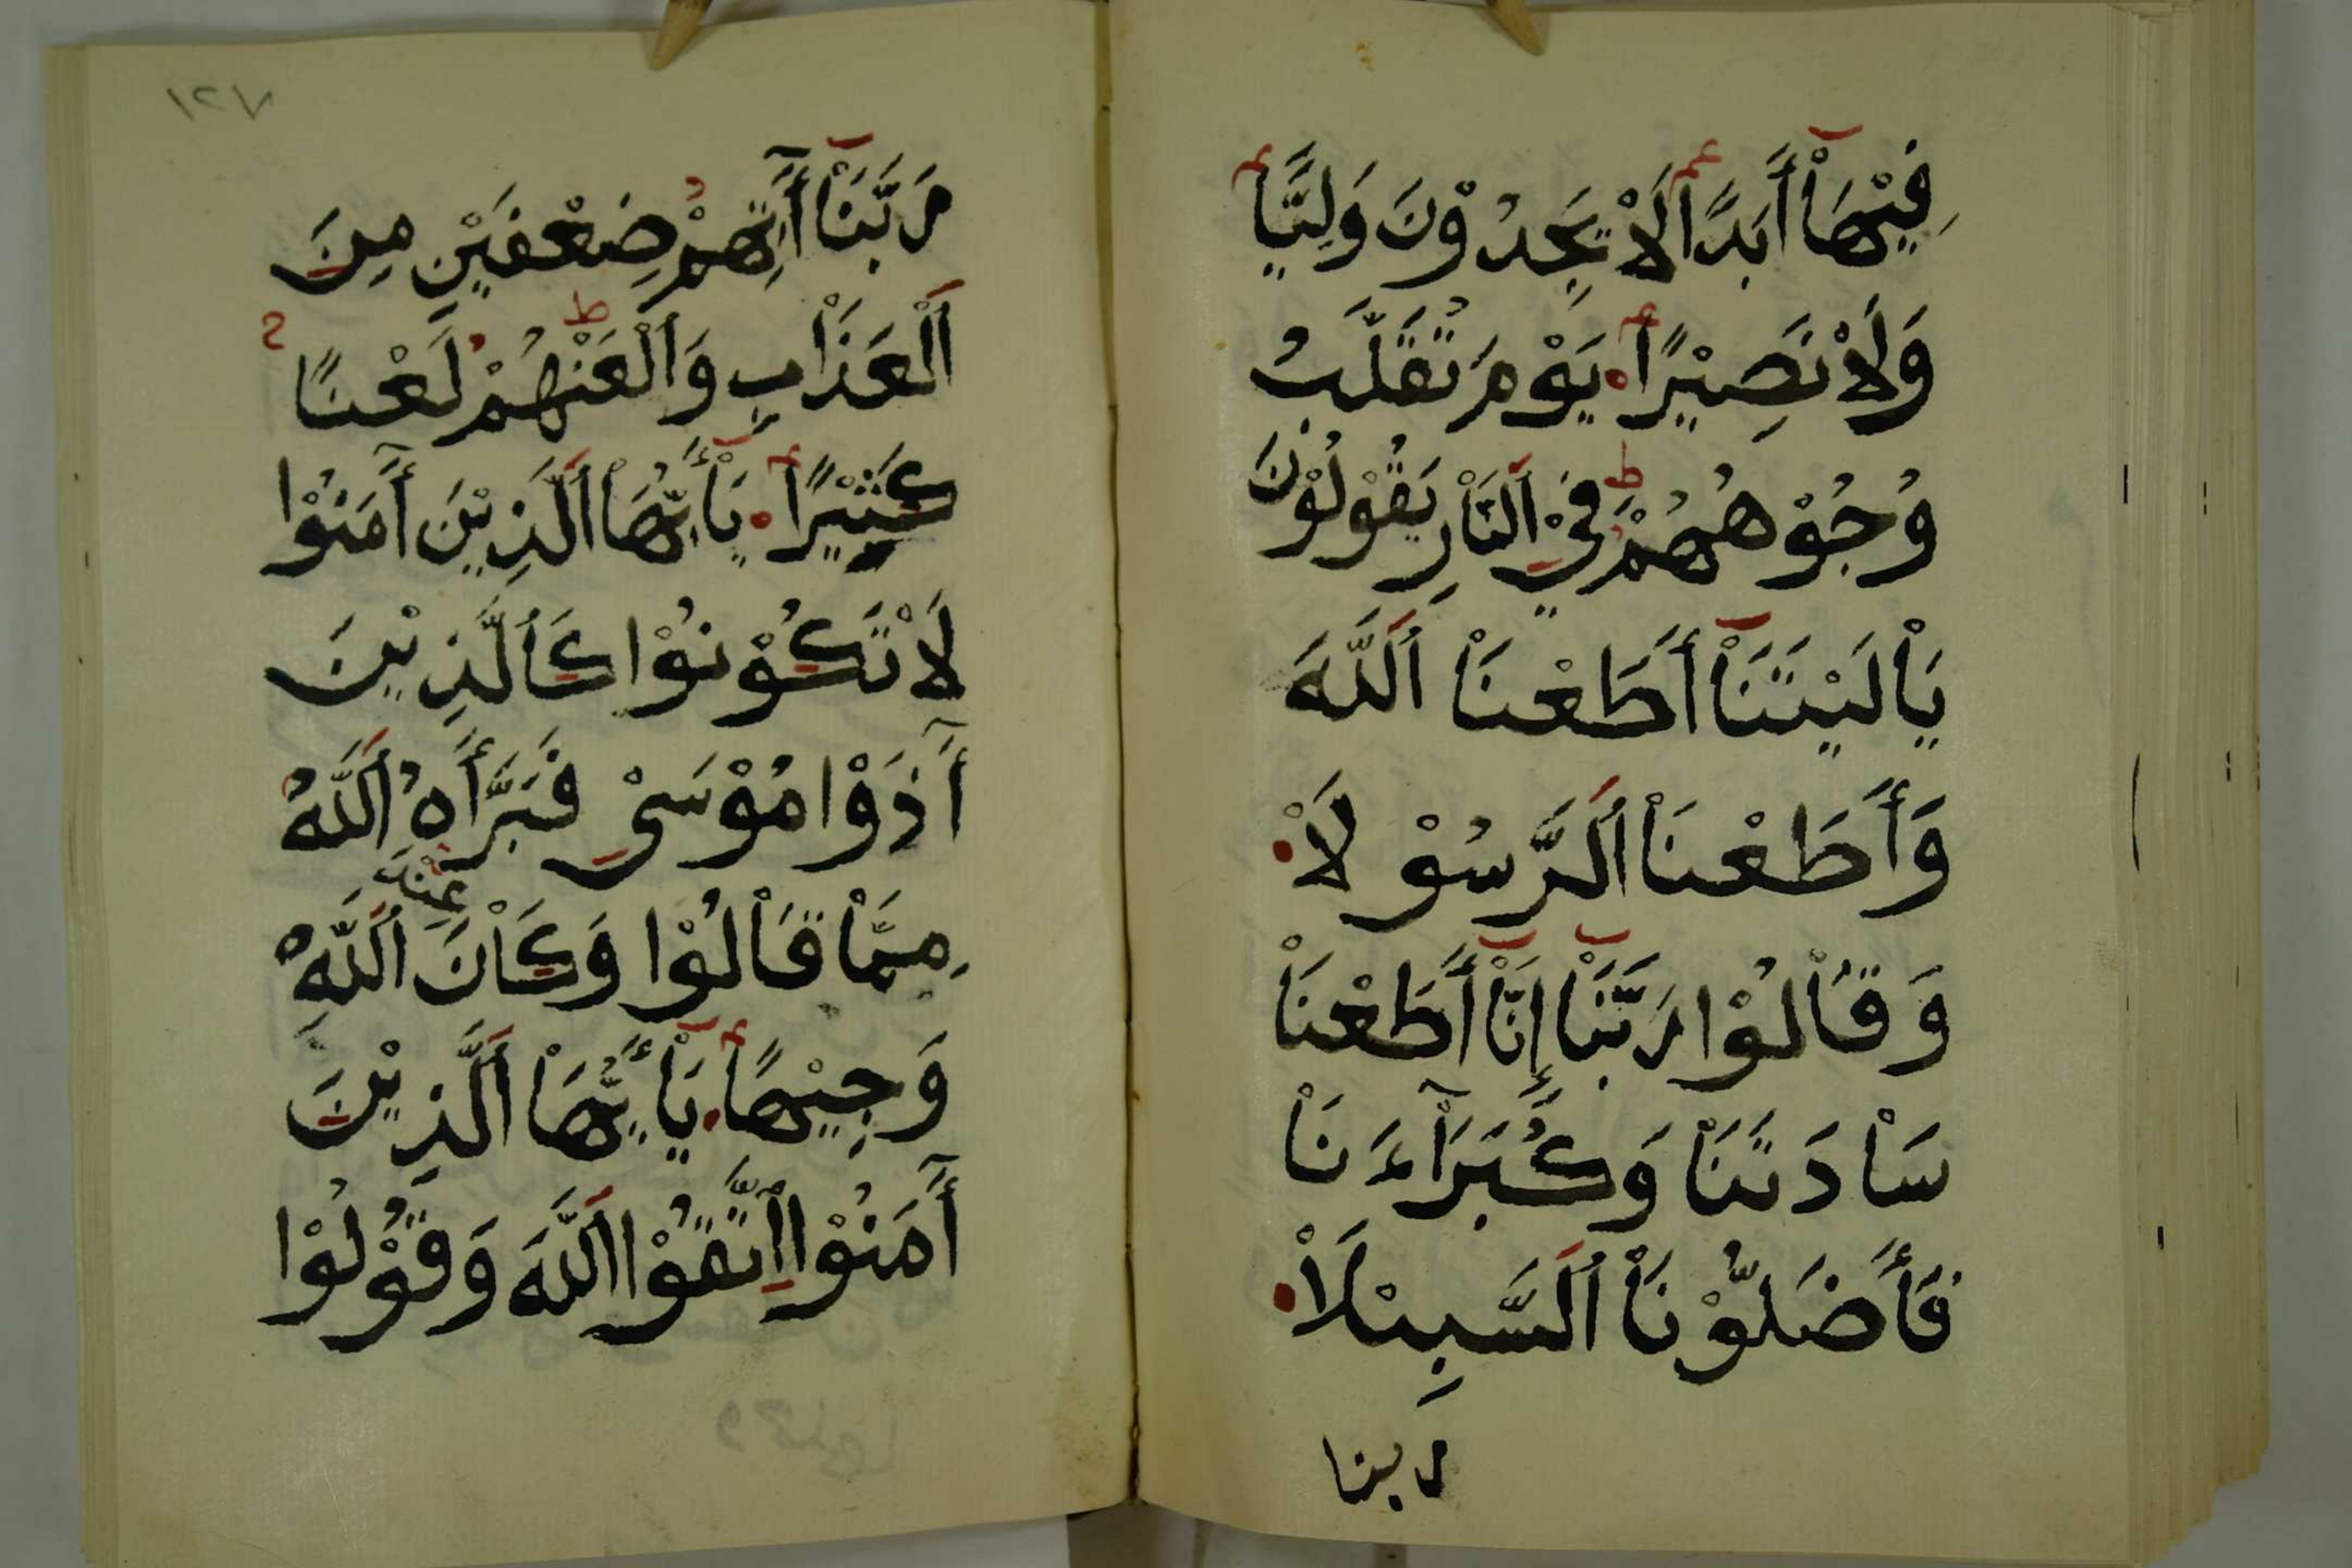 فِيْهَاْ أَبَدًا لَاْ يَجِدُوْنَ وَلِيًّا
وَلَاْ نَصِيْرًا يَوْمَ تُقَلَّبُ
وُجُوْهُهُمْ فِيْ اَلنَّاْرِ يَقُوْلُوْنَ
يَاْ لَيْتَنَاْ أَطَعْنَاْ اَللَّهَ
وَأَطَعْنَاْ اَلرَّسُوْلَاْ
وَقَاْلُوْا رَبَّنَاْ إِنَّاْ أَطَعْنَاْ
سَاْدَتَنَاْ وَكُبَرَآءَنَاْ
فَأَضَلُّوْنَاْ اَلسَّبِيْلَاْ
ربنا
١٢٧
رَبَّنَاْ أٓتِهِمْ ضِعْفَيْنِ مِنَ
اَلْعَذَاْبِ وَاَلْعَنْهُمْ لَعْنًا
كَثِيْرًا يَاْ أَيُّهَاْ اَلَّذِيْنَ أٓمَنُوْا
لَاْ تَكُوْنُوْا كَاَلَّذِيْنَ
أٓذَوْا مُوْسَىْ فَبَرَّأَهُ اَللَّهُ
مِمَّاْ قَاْلُوْا وَكَاْنَ عِنْدَ اَللَّهِ
وَجِيْهًا يَاْ أَيُّهَاْ اَلَّذِيْنَ
أٓمَنُوْا اِتَّقُوْا اَللَّهَ وَقُوْلُوْا